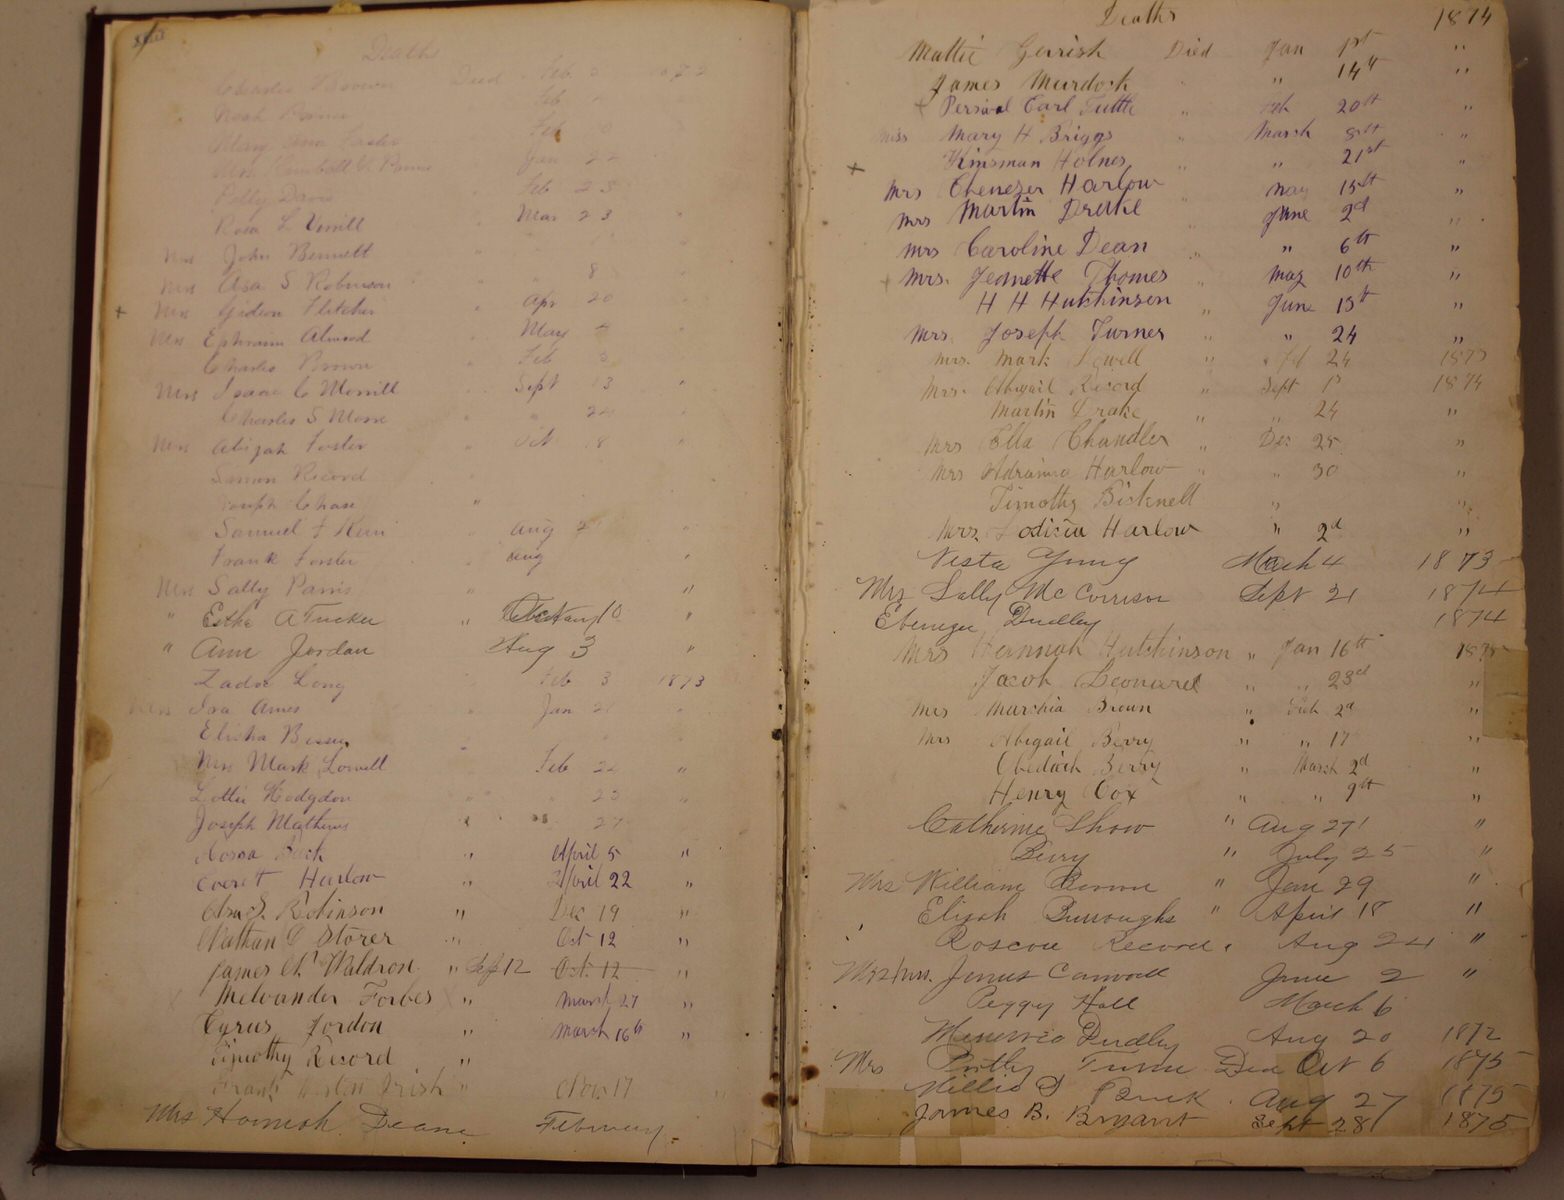 Deaths
Charles Brown Died Feb 3 1872
Noah Feb
Feb 10
Mrs Jan 22
Polly Davis Feb 23
L Verrill Mar 23 "
Mrs John Bennett "
Mrs Asa S Robinson " 8 "
+ Mrs Gideon Fletcher " Apr 20 "
Mrs Ephraim Atwood " May 4 "
Charles Brown " Feb 3 "
Mrs Isaac C Merrill " Sept 13 "
Charles S Morse " " 24 "
Mrs Abijah Foster " Oct 18 "
Simon Record
Joseph Chase "
Samuel F " Aug 2 "
Frank Foster " Aug "
Mrs Sally Parris "
" A Tucker " 10 "
" Ann Jordan Aug 3 "
Zadoc Long Feb 3 1873
Mrs Ira Ames " Jan 21 "
Elisha Bessey "
Mrs Mark Lowell Feb 24 "
Lottie Hodgdon " " 25 "
Joseph Mathews " " 27 "
Buck " April 5 "
Everett Harlow " April 22 "
Asa S. Robinson " Dec 19 "
Nathan D Storer " Oct 12 "
James Waldron " Sept 12 Oct 12 "
Melvander Forbes " March 27 "
Cyrus Jordon " March 16th "
Timothy Record "
Frank Irish " Nov. 17 "
Mrs Hannah Deane February
Deaths 1874
Mattie Gerrish Died Jan 1st "
James Murdock " 14th "
+ Persival Carl Tuttle " Feb 20th "
Miss Mary H Briggs " March 8th "
+ Kinsman Holmes " " 21st "
Mrs Ebenezer Harlow " May 15th "
Mrs Martin Drake " June 2d "
Mrs Caroline Dean " " 6th "
+ Mrs. Jeanette Thomes " May 10th "
H H Hutchinson " June 15th "
Mrs. Joseph Turner " " 24 "
Mrs. Mark Lowell " Feb 24 1873
Mrs. Abigail Record " Sept 1874
Martin Drake " " 24 "
Mrs Ella Chandler " Dec 25 "
Mrs Harlow " " 30 "
Timothy Bicknell " "
Mrs. Harlow " 2d "
Vesta Young March 4 1873
Mrs Sally McCorrison Sept 21 1874
Ebenezer Dudley 1874
Mrs Hannah Hutchinson " Jan 16th 1875
Jacob Leonard " " 23d "
Mrs Marshia Brown " Feb 2d "
Mrs Abigail Berry " " 17 "
Obediah Berry " March 2d "
Henry Cox " " 9th "
Catherine Shaw " Aug 27 "
Berry " July 25 "
Mrs William Brown " Jan 29 "
Elijah Burroughs " April 18 "
Roscoe Record " Aug 24 "
Mrs. June 2 "
Peggy Hall March 6
Minervia Dudley Aug 20 1872
Mrs Turner Died Oct 6 1875
Willie S Buck. Aug 27 1875
James B. Bryant Sept 28 1875